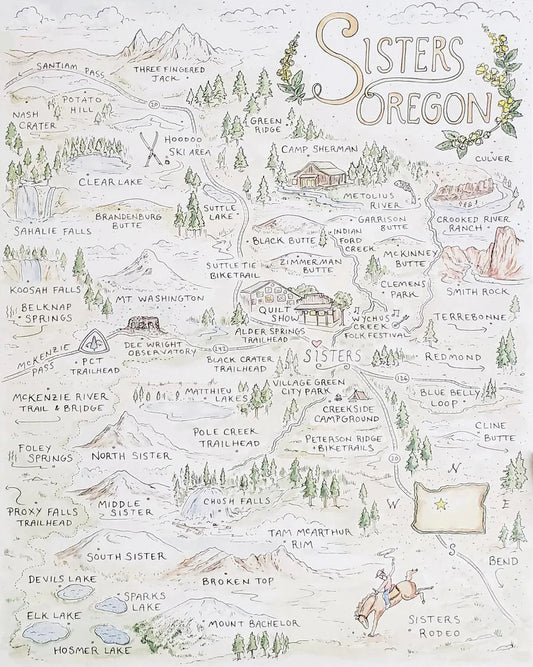 SISTERS
OREGON
SANTIAM PASS
THREE FINGERED
JACK
20
POTATO
HILL
NASH
CRATER
GREEN
RIDGE
HOODOO
SKI AREA
CAMP SHERMAN
CULVER
CLEAR LAKE
METOLIUS
RIVER
SUTTLE
LAKE
BRANDENBURG
BUTTE
GARRISON
BUTTE
CROOKED RIVER
RANCH
SAHALIE FALLS
BLACK BUTTE
INDIAN
FORD
CREEK
MCKINNEY
BUTTE
SUTTLE TIE
BIKETRAIL
ZIMMERMAN
BUTTE
KOOSAH FALLS
MT. WASHINGTON
CLEMENS
PARK
SMITH ROCK
BELKNAP
SPRINGS
QUILT
SHOW
WYCHUS
CREEK
FOLK FESTIVAL
TERREBONNE
ALDER SPRINGS
TRAILHEAD
MCKENZIE
PASS
PCT
TRAILHEAD
DEE WRIGHT
OBSERVATORY
242
BLACK CRATER
TRAILHEAD
SISTERS
REDMOND
126
MCKENZIE RIVER
TRAIL & BRIDGE
MATTHIEU
LAKES
VILLAGE GREEN
CITY PARK
BLUE BELLY
LOOP
CREEKSIDE
CAMPGROUND
POLE CREEK
TRAILHEAD
PETERSON RIDGE
BIKETRAILS
CLINE
BUTTE
FOLEY
SPRINGS
NORTH SISTER
20
N
W
E
S
PROXY FALLS
TRAILHEAD
MIDDLE
SISTER
CHUSH FALLS
TAM MCARTHUR
RIM
SOUTH SISTER
BROKEN TOP
BEND
DEVILS LAKE
SPARKS
LAKE
ELK LAKE
HOSMER LAKE
MOUNT BACHELOR
SISTERS
RODEO